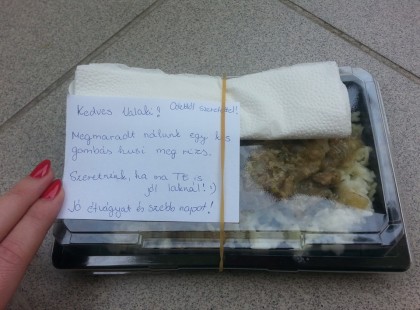 Kedves Valaki!
Megmaradt nálunk egy kis
gombás husi meg rizs.
Szeretnénk, ha ma TE is
jól laknál! :)
Jó étvágyat és szebb napot!